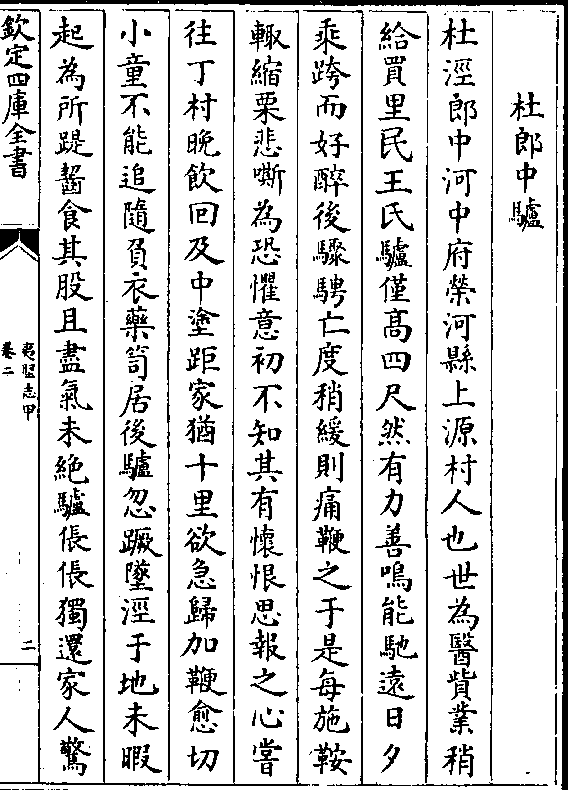 杜郎中驢
杜涇郎中河中府榮河縣上源村人也世為醫貲業稍
給買里民王氏驢僅髙四尺然有力善鳴能馳遠日夕
乘跨而好醉後驟騁亡度稍緩則痛鞭之于是每施鞍
輙縮栗悲嘶為恐懼意初不知其有懷恨思報之心嘗
往丁村晚飲回及中塗距家猶十里欲急歸加鞭愈切
小童不能追隨負衣藥笥居後驢忽蹶墜涇于地未暇
起為所踶齧食其股且盡氣未絶驢倀倀獨還家人驚
欽定四庫全書
夷堅志甲
卷二
二